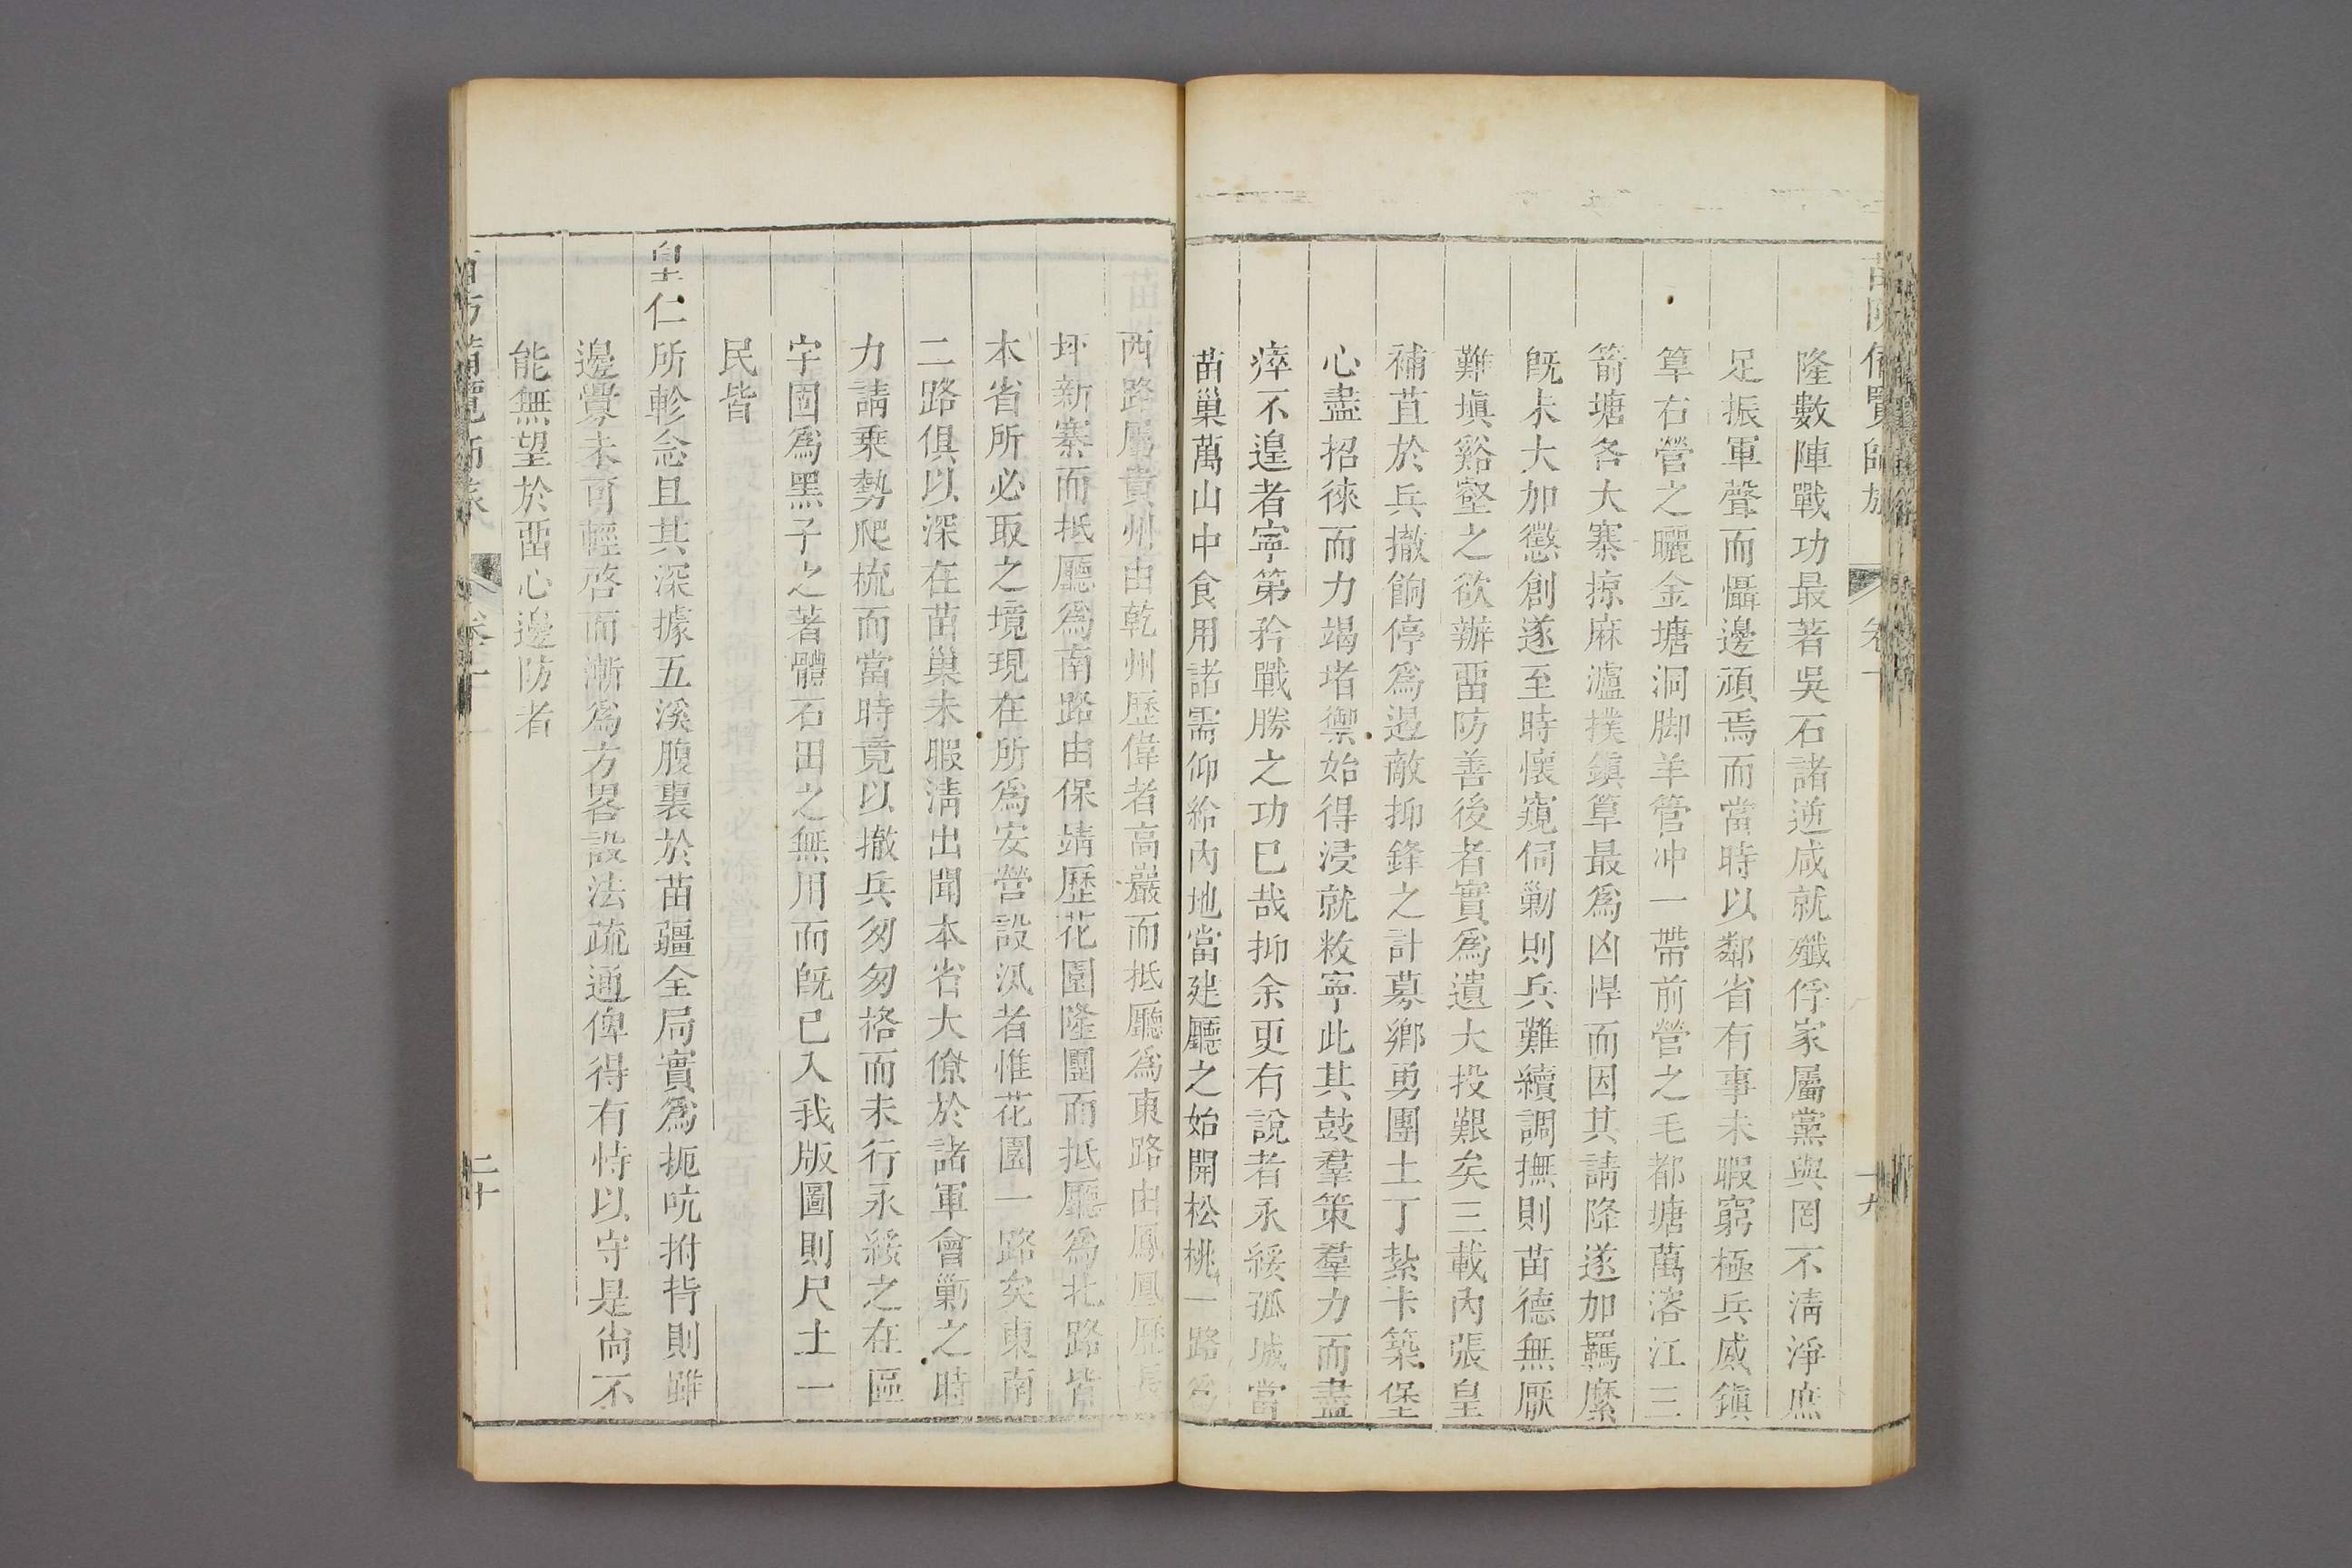 隆數陣戰功最著吳石諸逆咸就殲俘家屬黨與罔不清淨庶
足振軍聲而懾邊頑焉而當時以鄰省有事未暇窮極兵威鎮
筸右營之曬金塘洞脚羊管冲一帶前營之毛都塘萬溶江三
箭塘各大寨掠麻瀘撲鎮筸最爲凶悍而因其請降遂加羈縻
旣未大加懲創遂至時懷窺伺勦則兵難續調撫則苗德無厭
難塡谿壑之欲辦畱防善後者實爲遺大投艱矣三載內張皇
補苴於兵撤餉停爲遏敵抑鋒之計募鄉勇團土丁紮卡築堡
心盡招徠而力竭堵禦始得浸就敉寧此其鼓羣策羣力而盡
瘁不遑者寧第矜戰勝之功已哉抑余更有說者永綏孤城當
苗巢萬山中食用諸需仰給內地當建廳之始開松桃一路爲
西路屬貴州由乾州歷偉者高巖而抵廳爲東路由鳳凰歷長
坪新寨而抵廳爲南路由保靖歷花園隆團而抵廳爲北路皆
本省所必取之境現在所爲安營設汛者惟花園一路矣東南
二路俱以深在苗巢未暇淸出聞本省大僚於諸軍會勦之時
力請乘勢爬梳而當時竟以撤兵匆匆格而未行永綏之在區
宇固爲黑子之著體石田之無用而旣已入我版圖則尺土一
民皆
皇仁所軫念且其深據五溪腹裏於苗疆全局實爲扼吭拊背則雖
邊釁未可輕啓而漸爲方畧設法疏通俾得有恃以守是尙不
能無望於畱心邊防者
卷十一
二十